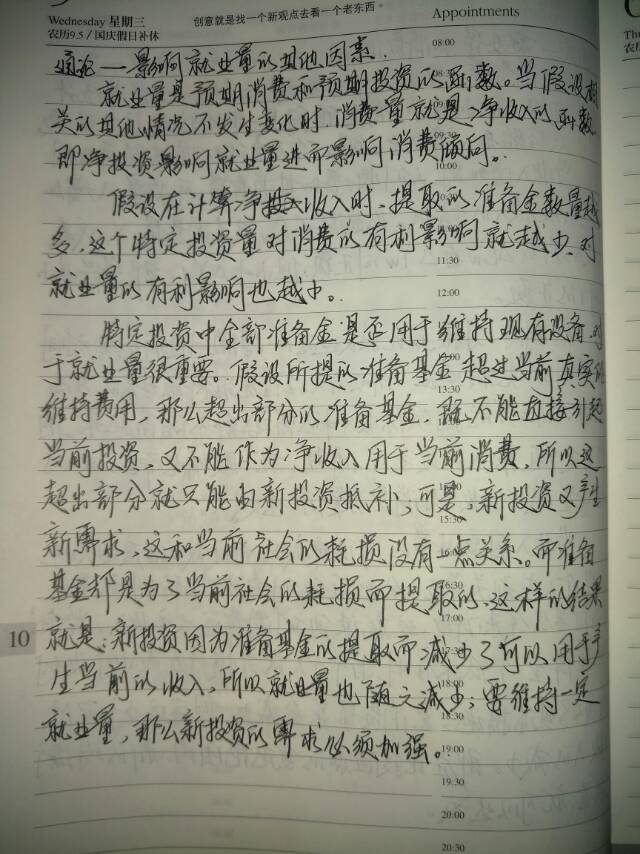 Wednesday 星期三
农历9.5/国庆假日补休
创意就是找一个新观点去看一个老东西。
Appointments
08:00
通论——影响就业量的其他因素.
就业量是预期消费和预期投资的函数。当假设相
关的其他情况不发生变化时,消费量就是净收入的函数,
即净投资影响就业量进而影响消费倾向。
10:00
假设在计算净收入时、提取的准备金数量越
多,这个特定投资量对消费的有利影响就越少、对
11:30
就业量的有利影响也越小。
12:00
特定投资中全部准备金是否用于维持现有设备,对
于就业量很重要。假设所提的准备基金超过当前真实的
13:30
维持费用,那么超出部分的准备基金,既不能直接引起
当前投资,又不能作为净收入用于当前消费,所以这
超出部分就只能由新投资抵补,可是,新投资又产生
15:30
新需求,这和当前社会的耗损没有一点关系。而准备
基金却是为了当前社会的耗损而提取的、这样的结果
16:30
17:00
10
就是:新投资因为准备基金的提取而减少了可以用于产
生当前的收入,所以就业量也随之减少;要维持一定
18:00
18:30
就业量,那么新投资的需求必须加强。
19:00
19:30
20:00
20:30